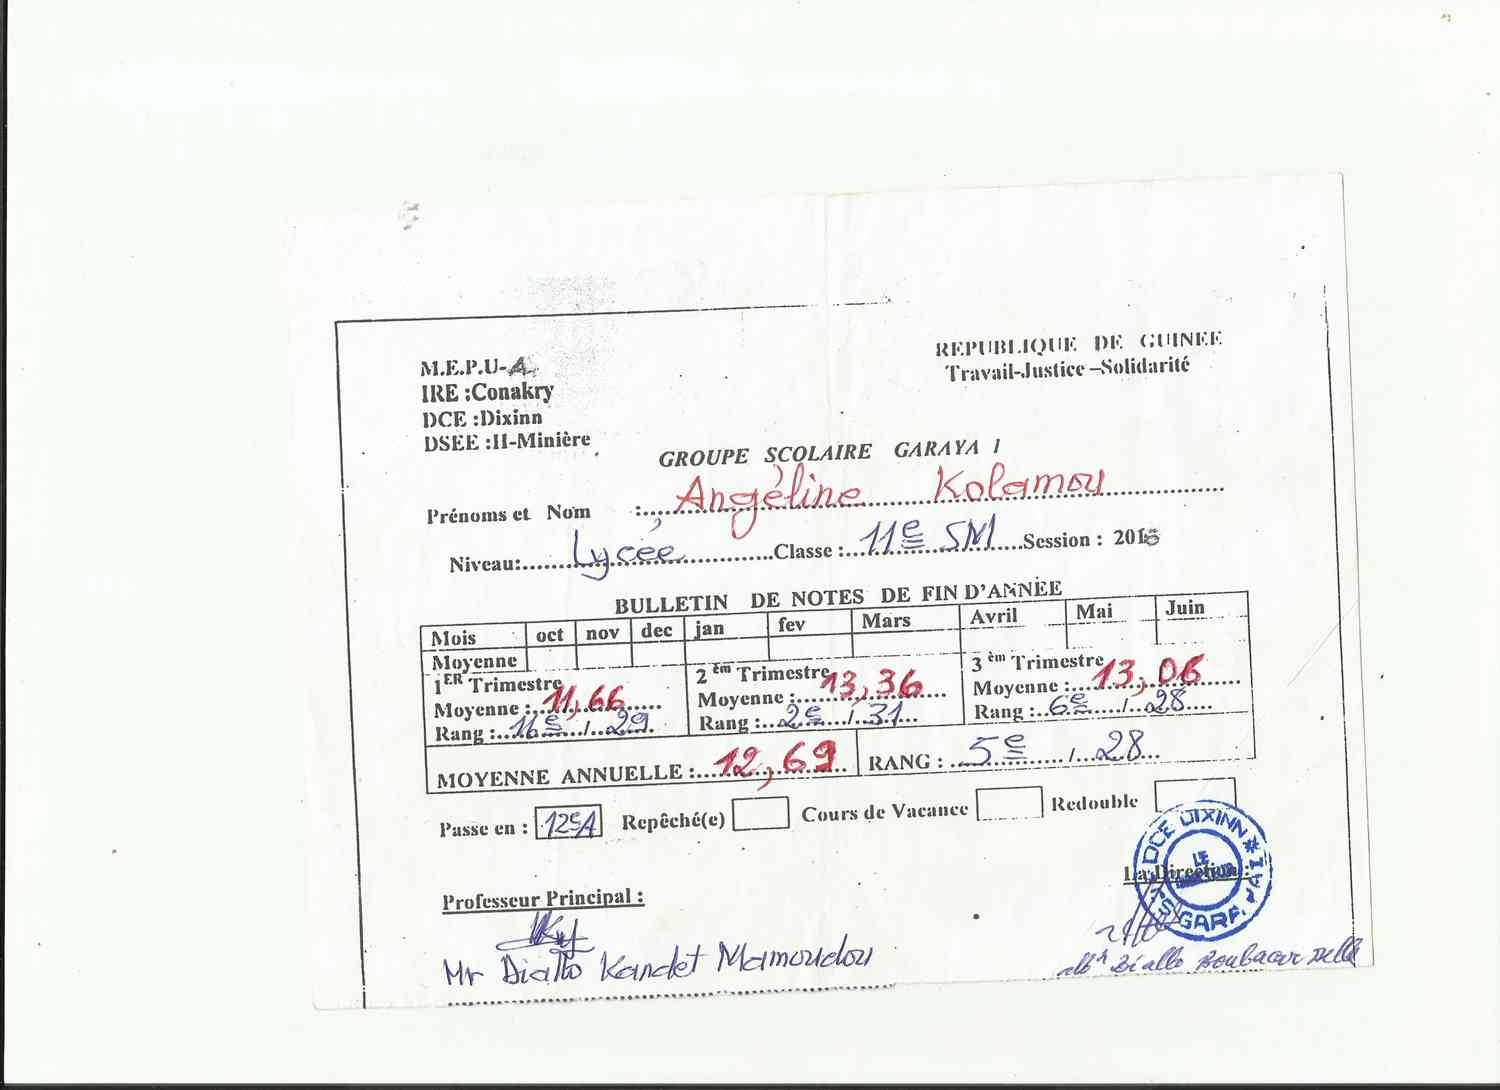 M.E.P.U-A
IRE :Conakry
DCE :Dixinn
DSEE :II-Minière
REPUBLIQUE DE GUINEE
Travail-Justice –Solidarité
GROUPE SCOLAIRE GARAYA I
Prénoms et Nom : Angéline Kolamou
Niveau: Lycée Classe : 11e SM Session : 2018
BULLETIN DE NOTES DE FIN D'ANNÉE
Mois oct nov dec jan fev Mars Avril Mai Juin
Moyenne
1ER Trimestre 2 ém Trimestre 3 ém Trimestre
Moyenne : 11,66 Moyenne : 13,36 Moyenne : 13,06
Rang : 11e / 29 Rang : 2e / 31 Rang : 6e / 28
MOYENNE ANNUELLE : 12,69 RANG : 5e / 28
Passe en : 12eA Repêché(e) Cours de Vacance Redouble
Professeur Principal : La Direction :
DCE DIXINN
LE
Mr Diallo Kandet Mamoudou
Mr Diallo Boubacar